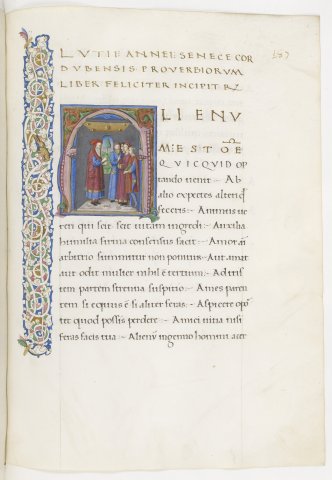 LVTII ANNEI SENECE COR
DVBENSIS PROVERBIORVM
LIBER FELICITER INCIPIT
ALIENV
M: EST OE
QVICQVID OP
tando uenit :- Ab
alio expectes alteri qd
feceris :- Animus ue
reri qui scit scit uitam ingredi :- Auxilia
humilia firma consensus facit :- Amor aīi
arbitrio sumitur non ponitur :- Aut amat
aut odit mulier nihil ē tertium :- Ad tris
tem partem strenua suspitio :- Ames paren
tem si equus ē si aliter feras :- Aspicere opor
tet quod possis perdere :- Amici uitia nisi
feras facis tua :- Alienū ingenuo homini acer